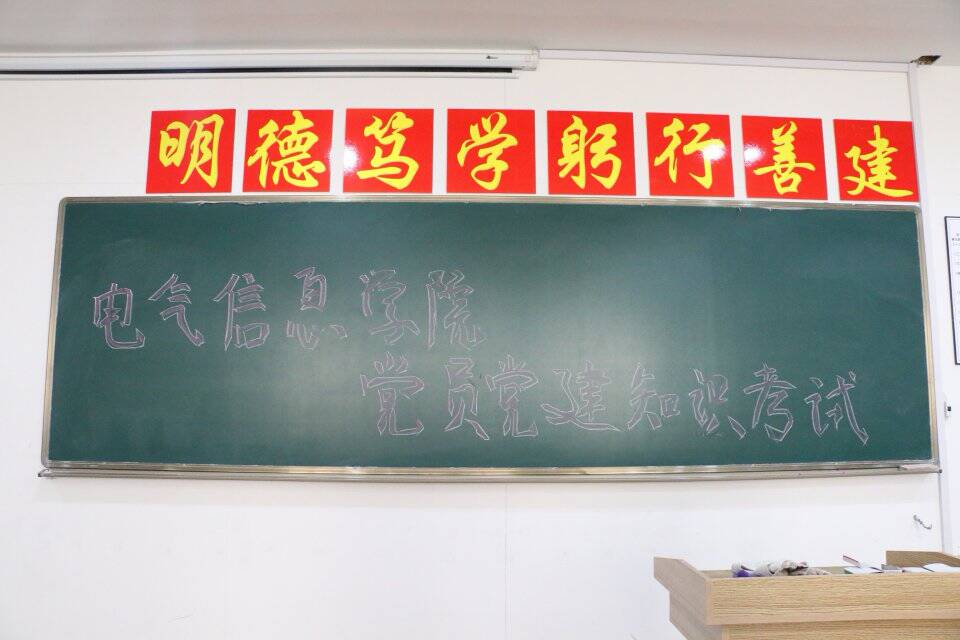 明德笃学躬行善建
电气信息学院
党员党建知识考试